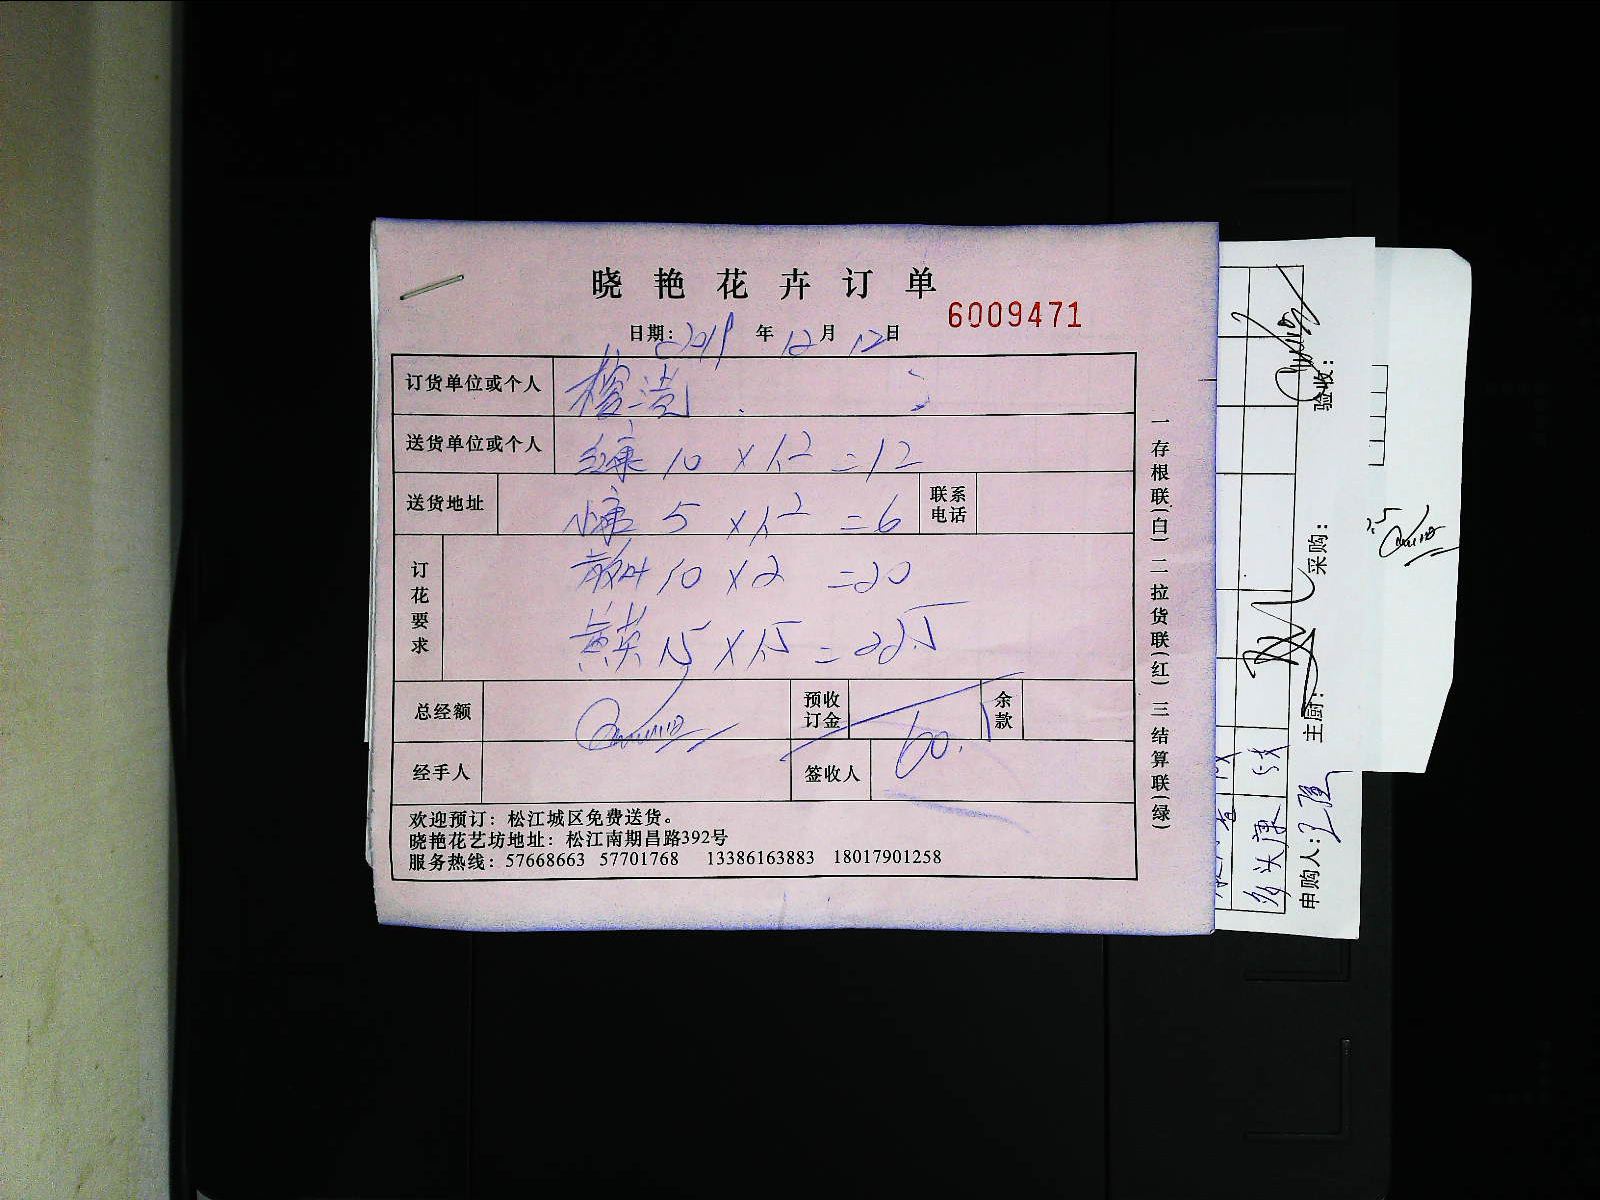 晓艳花卉订单
6009471
日期: 2019 年 12 月 12 日
订货单位或个人
送货单位或个人 红康 10 × 1.2 = 12
送货地址 5 × 1.2 = 6 联系电话
订花要求 散叶 10 × 2 = 20
黄英 15 × 1.5 = 22.5
总经额 预收订金 60. 余款
经手人 签收人
欢迎预订：松江城区免费送货。
晓艳花艺坊地址：松江南期昌路392号
服务热线：57668663 57701768 13386163883 18017901258
一存根联(白) 二拉货联(红) 三结算联(绿)
多头康 5支
申购人: 主厨: 采购: 验收: